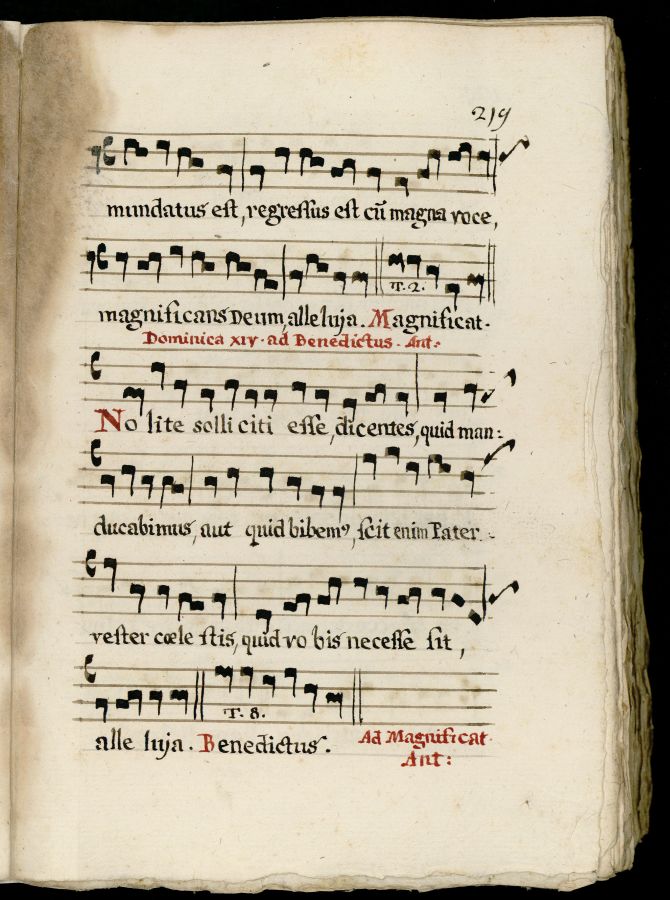 219
mundatus est, regressus est cū magna voce,
T. 2.
magnificans Deum, alleluja. Magnificat.
Dominica XIV. ad Benedictus. Ant:
No lite solli citi esse, dicentes, quid man:
ducabimus, aut quid bibemꝰ, scit enim Pater
vester cœle stis, quid vo bis necesse sit,
T. 8.
alle luja. Benedictus. Ad Magnificat.
Ant: